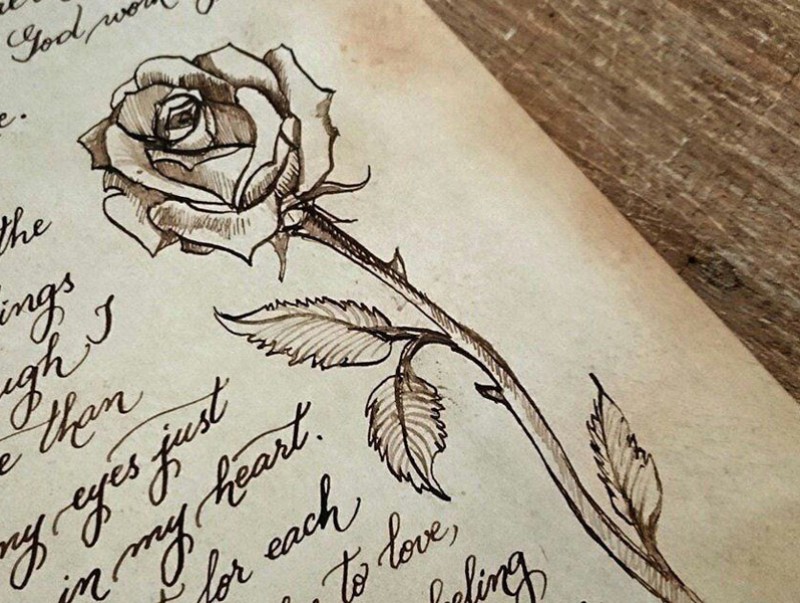 God work
the
ings
ugh I
than
my eyes just
in my heart.
for each
to love,